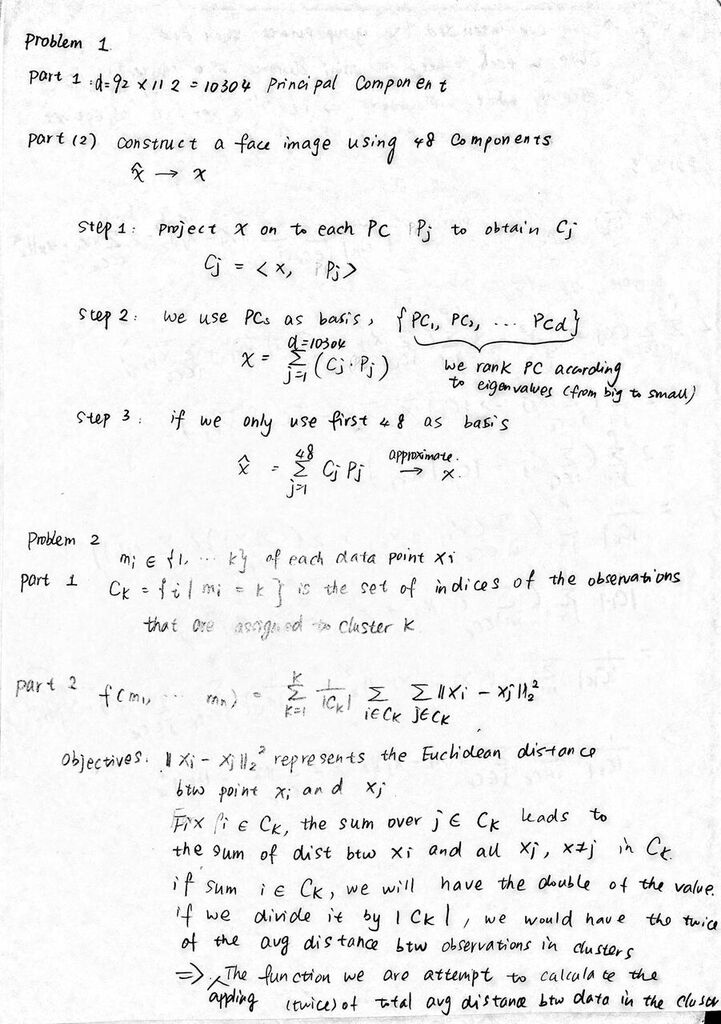 Problem 1
part 1: d=92 x 112 = 10304 Principal Component
part (2) construct a face image using 48 Components
x̂ → x
step 1: project x on to each PC Pj to obtain Cj
Cj = <x, Pj>
step 2: we use PCs as basis, {PC1, PC2, ... PCd}
d=10304
x = Σ (Cj · Pj) we rank PC acording
j=1 to eigenvalues (from big to small)
step 3: if we only use first 48 as basis
48 approximate.
x̂ = Σ Cj Pj → x.
j=1
Problem 2
mi ∈ {1, ... k} of each data point xi
part 1 CK = {i | mi = k} is the set of indices of the observations
that are assigned to cluster K
part 2 f(m1, ... mn) = Σ_{K=1}^{K} 1/|CK| Σ_{i∈CK} Σ_{j∈CK} ||xi - xj||₂²
objectives: ||xi - xj||₂² represents the Euclidean distance
btw point xi and xj
Fix i ∈ CK, the sum over j ∈ CK leads to
the sum of dist btw xi and all xj, x≠j in CK.
if sum i ∈ CK, we will have the double of the value.
if we divide it by |CK|, we would have the twice
of the avg distance btw observations in clusters
=> The function we are attempt to calculate the
appling (twice) of total avg distance btw data in the cluster